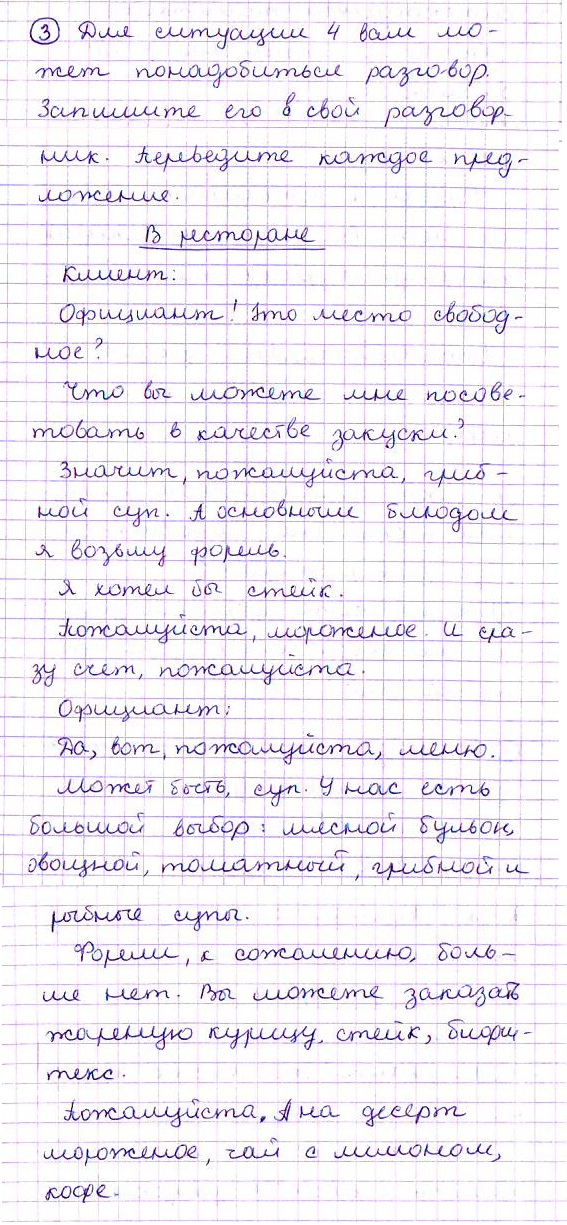 ③ Для ситуации 4 вам мо-
жет понадобиться разговор.
Запишите его в свой разговор-
ник. Переведите каждое пред-
ложение.
В ресторане
Клиент:
Официант! Это место свобод-
ное?
Что вы можете мне посове-
товать в качестве закуски?
Значит, пожалуйста, гриб-
ной суп. А основным блюдом
я возьму форель.
Я хотел бы стейк.
Пожалуйста, мороженое. И сра-
зу счет, пожалуйста.
Официант:
Да, вот, пожалуйста, меню.
Может быть, суп. У нас есть
большой выбор: мясной бульон,
овощной, томатный, грибной и
рыбные супы.
Форели, к сожалению, боль-
ше нет. Вы можете заказать
жареную курицу, стейк, бифш-
текс.
Пожалуйста. А на десерт
мороженое, чай с лимоном,
кофе.